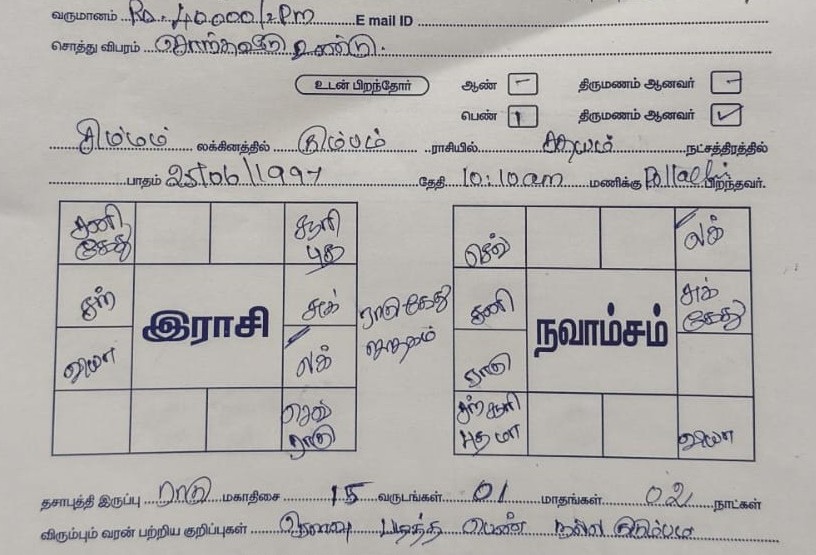 வருமானம் Rs. 40000/- Pm E mail ID
சொத்து விபரம் சொந்தவீடு உண்டு.
உடன் பிறந்தோர் ஆண் - திருமணம் ஆனவர் -
பெண் 1 திருமணம் ஆனவர் ✓
சிம்மம் லக்கினத்தில் கும்பம் ராசியில் சதயம் நட்சத்திரத்தில்
பாதம் 25/06/1997 தேதி 10:10am மணிக்கு Pollachi பிறந்தவர்.
சனி கேது சூரி புத செவ் லக்
சந் சுக் ராகு கேது ஜாதகம் சனி சுக் கேது
இராசி நவாம்சம்
லக் ராகு
செவ் ராகு சந் சூரி
தசாபுத்தி இருப்பு ராகு மகாதிசை 15 வருடங்கள் 01 மாதங்கள் 02 நாட்கள்
விரும்பும் வரன் பற்றிய குறிப்புகள் படித்த பெண் நல்ல குடும்பம்